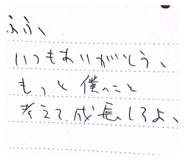 ふふ、
いつもありがとう、
もっと僕のこと
考えて、成長しろよ、